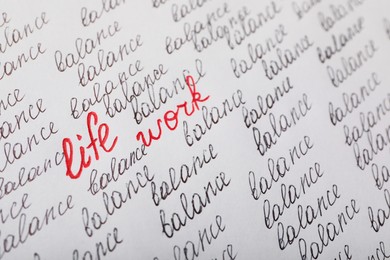 balance balance balance balance
balance balance balance balance
balance balance balance balance balance
balance balance balance balance balance
balance balance balance balance balance
balance life work balance balance balance
balance balance balance balance balance
balance balance balance balance balance
balance balance balance balance balance
balance balance balance balance